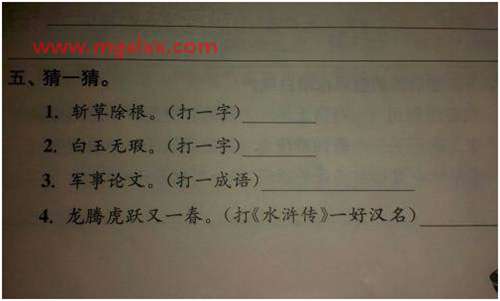 www.mgelxx.com
五、猜一猜。
1. 斩草除根。(打一字)
2. 白玉无瑕。(打一字)
3. 军事论文。(打一成语)
4. 龙腾虎跃又一春。(打《水浒传》一好汉名)